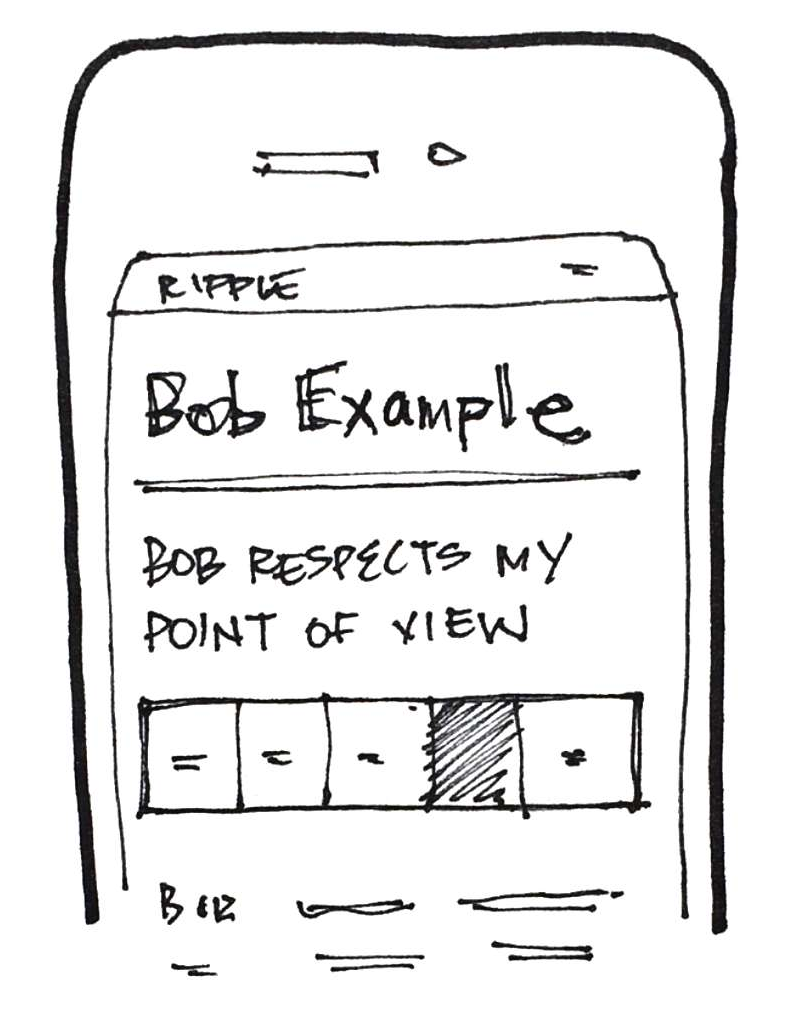 RIPPLE
Bob Example
BOB RESPECTS MY
POINT OF VIEW
BOB